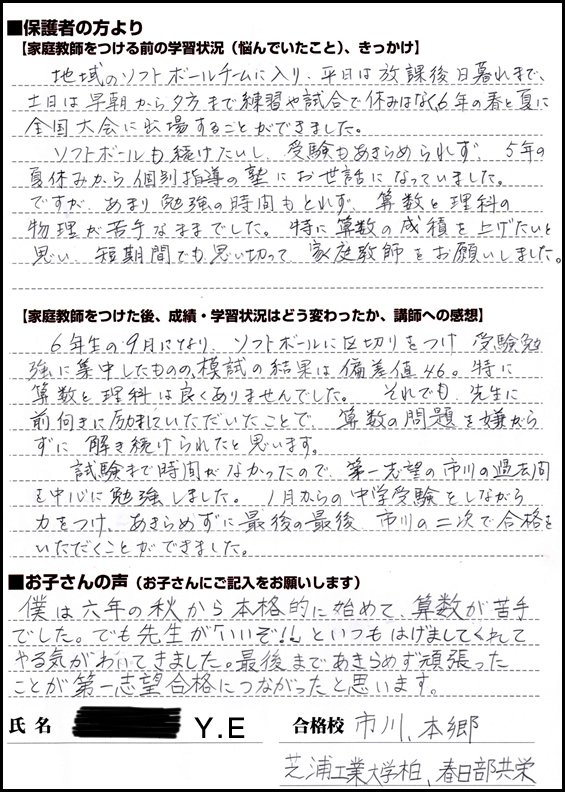 ■保護者の方より
【家庭教師をつける前の学習状況（悩んでいたこと）、きっかけ】
地域のソフトボールチームに入り、平日は放課後日暮れまで、
土日は早朝から夕方まで練習や試合で休みはなく、6年の春と夏に
全国大会に出場することができました。
ソフトボールも続けたいし、受験もあきらめられず、5年の
夏休みから個別指導の塾にお世話になっていました。
ですが、あまり勉強の時間もとれず、算数と理科の
物理が苦手なままでした。特に算数の成積を上げたいと
思い、短期間でも思い切って家庭教師をお願いしました。
【家庭教師をつけた後、成績・学習状況はどう変わったか、講師への感想】
6年生の9月になり、ソフトボールに区切りをつけ受験勉
強に集中したものの、模試の結果は偏差値46。特に
算数と理科は良くありませんでした。それでも、先生に
前向きに励ましていただいたことで、算数の問題を嫌がら
ずに解き続けられたと思います。
試験まで時間がなかったので、第一志望の市川の過去問
を中心に勉強しました。1月からの中学受験をしながら
力をつけ、あきらめずに最後の最後市川の二次で合格を
いただくことができました。
■お子さんの声（お子さんにご記入をお願いします）
僕は六年の秋から本格的に始めて、算数が苦手
でした。でも先生が「いいぞ!!」といつもはげましてくれて
やる気がわいてきました。最後まであきらめず頑張った
ことが第一志望合格につながったと思います。
氏名 Y.E 合格校 市川、本郷
芝浦工業大学柏、春日部共栄